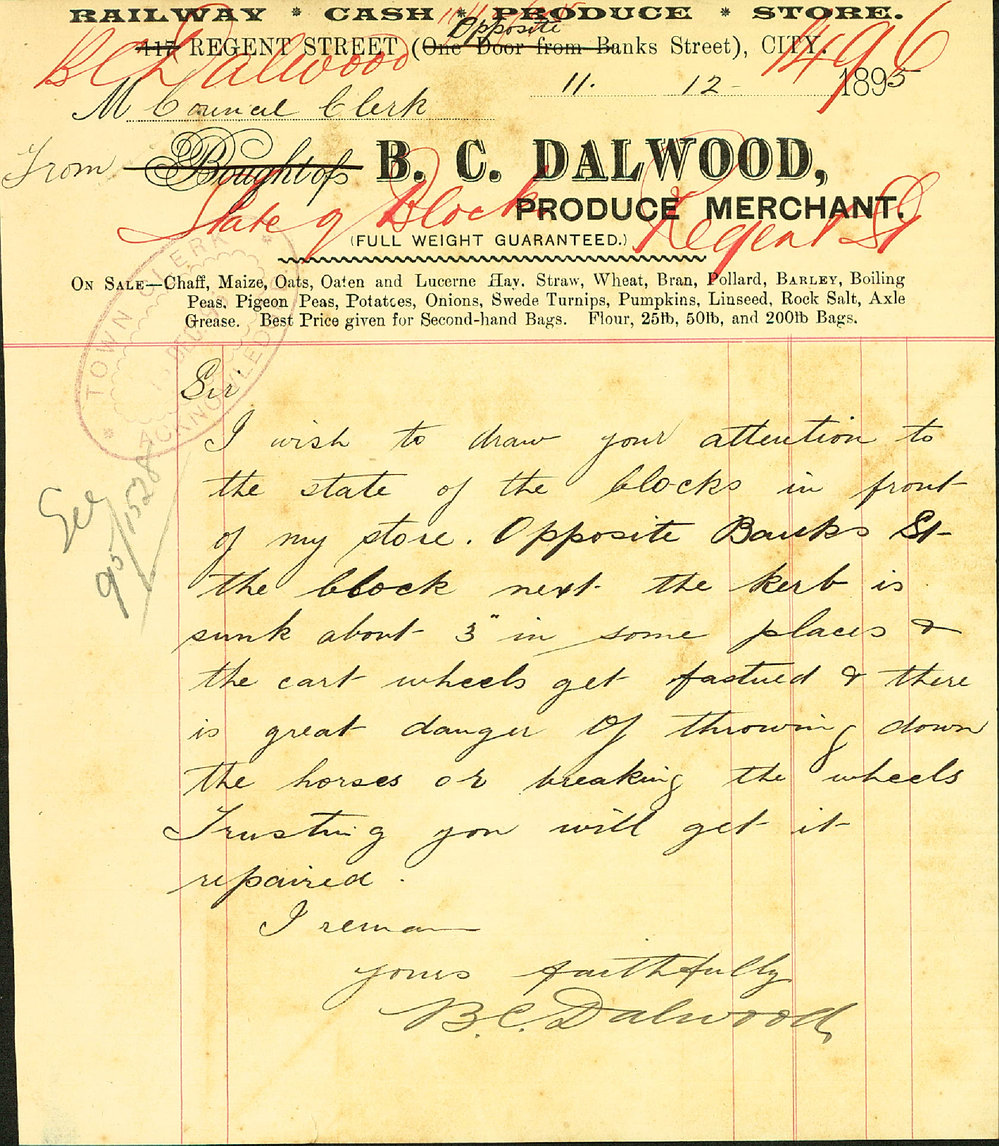 RAILWAY * CASH * PRODUCE * STORE.
Opposite
117 REGENT STREET (One Door from Banks Street), CITY.
B C Dalwood
1496
11. 12 1895
M Council Clerk
From Bought of B. C. DALWOOD,
PRODUCE MERCHANT.
State of Blocks Regent St
(FULL WEIGHT GUARANTEED.)
ON SALE—Chaff, Maize, Oats, Oaten and Lucerne Hay. Straw, Wheat, Bran, Pollard, BARLEY, Boiling
Peas, Pigeon Peas, Potatoes, Onions, Swede Turnips, Pumpkins, Linseed, Rock Salt, Axle
Grease. Best Price given for Second-hand Bags. Flour, 25lb, 50lb, and 200lb Bags.
TOWN CLERK
DEC
ACKNOWLEDGED
Sir
I wish to draw your attention to
the state of the blocks in front
of my store. Opposite Banks St
the block next the kerb is
sunk about 3" in some places &
the cart wheels get fastued & there
is great danger of throwing down
the horses or breaking the wheels
Trusting you will get it
repaired.
I remain
yours faithfully
B. C. Dalwood
See
95/1528